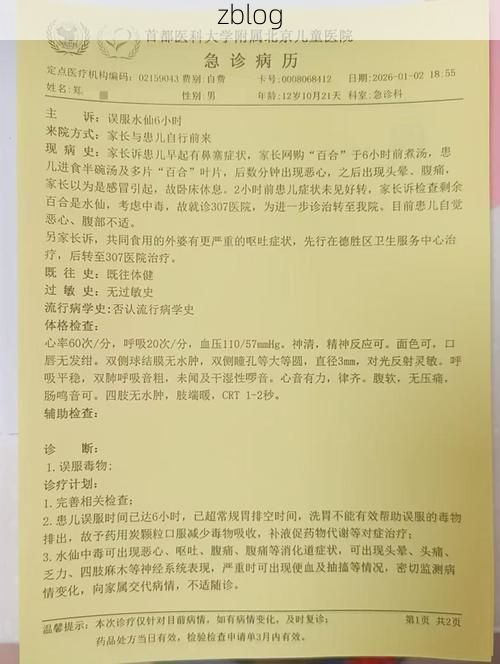 zblog
首都医科大学附属北京儿童医院
急诊病历
定点医疗机构编码: 02159043 费别:自费 卡号:0008068412 日期:2026-01-02 18:55
姓名:郑 性别:男 年龄:12岁10月21天 科室:急诊科
主 诉:误服水仙6小时
来院方式:家长与患儿自行前来
现 病 史:家长诉患儿早起有鼻塞症状,家长网购“百合”于6小时前煮汤,患
儿进食半碗汤及多片“百合”叶片,后数分钟出现恶心,之后出现头晕、腹痛,
家长以为是感冒引起,故卧床休息。2小时前患儿症状未见好转,家长诉检查剩余
百合是水仙,考虑中毒,故就诊307医院,为进一步诊治转至我院。目前患儿自觉
恶心、腹部不适。
另家长诉,共同食用的外婆有更严重的呕吐症状,先行在德胜区卫生服务中心治
疗,后转至307医院治疗。
既 往 史:既往体健
过 敏 史:无过敏史
流行病学史:否认流行病学史
体格检查:
心率60次/分,呼吸20次/分,血压110/57mmHg。神清,精神反应可。面色可。口
唇无发绀。双侧球结膜无水肿,双侧瞳孔等大等圆,直径3mm,对光反射灵敏。呼
吸平稳,双肺呼吸音粗,未闻及干湿性啰音。心音有力,律齐。腹软,无压痛,
肠鸣音可。四肢无水肿,肢端暖,CRT 1-2秒。
辅助检查:
诊 断:
1.误服毒物;
诊疗计划:
1.完善相关检查;
2.患儿误服时间已达6小时,已超常规胃排空时间,洗胃不能有效帮助误服的毒物
排出,故予药用炭颗粒口服减少毒物吸收,补液促药物代谢等对症治疗;
3.水仙中毒可出现恶心、呕吐、腹痛、腹痛等消化道症状,可出现头晕、头痛、
乏力、四肢麻木等神经系统表现,严重时可出现便血及抽搐等情况,密切监测病
情变化,向家属交代病情,不适随诊。
温馨提示:本次诊疗仅针对目前病情,如有病情变化,及时复诊; 第1页 共2页
药品处方当日有效,检验检查申请单3月内有效。